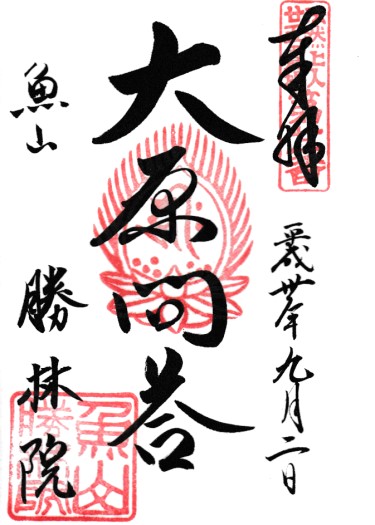 奉拝
平成卅年九月二日
大原問答
魚山 勝林院
魚山
勝林院